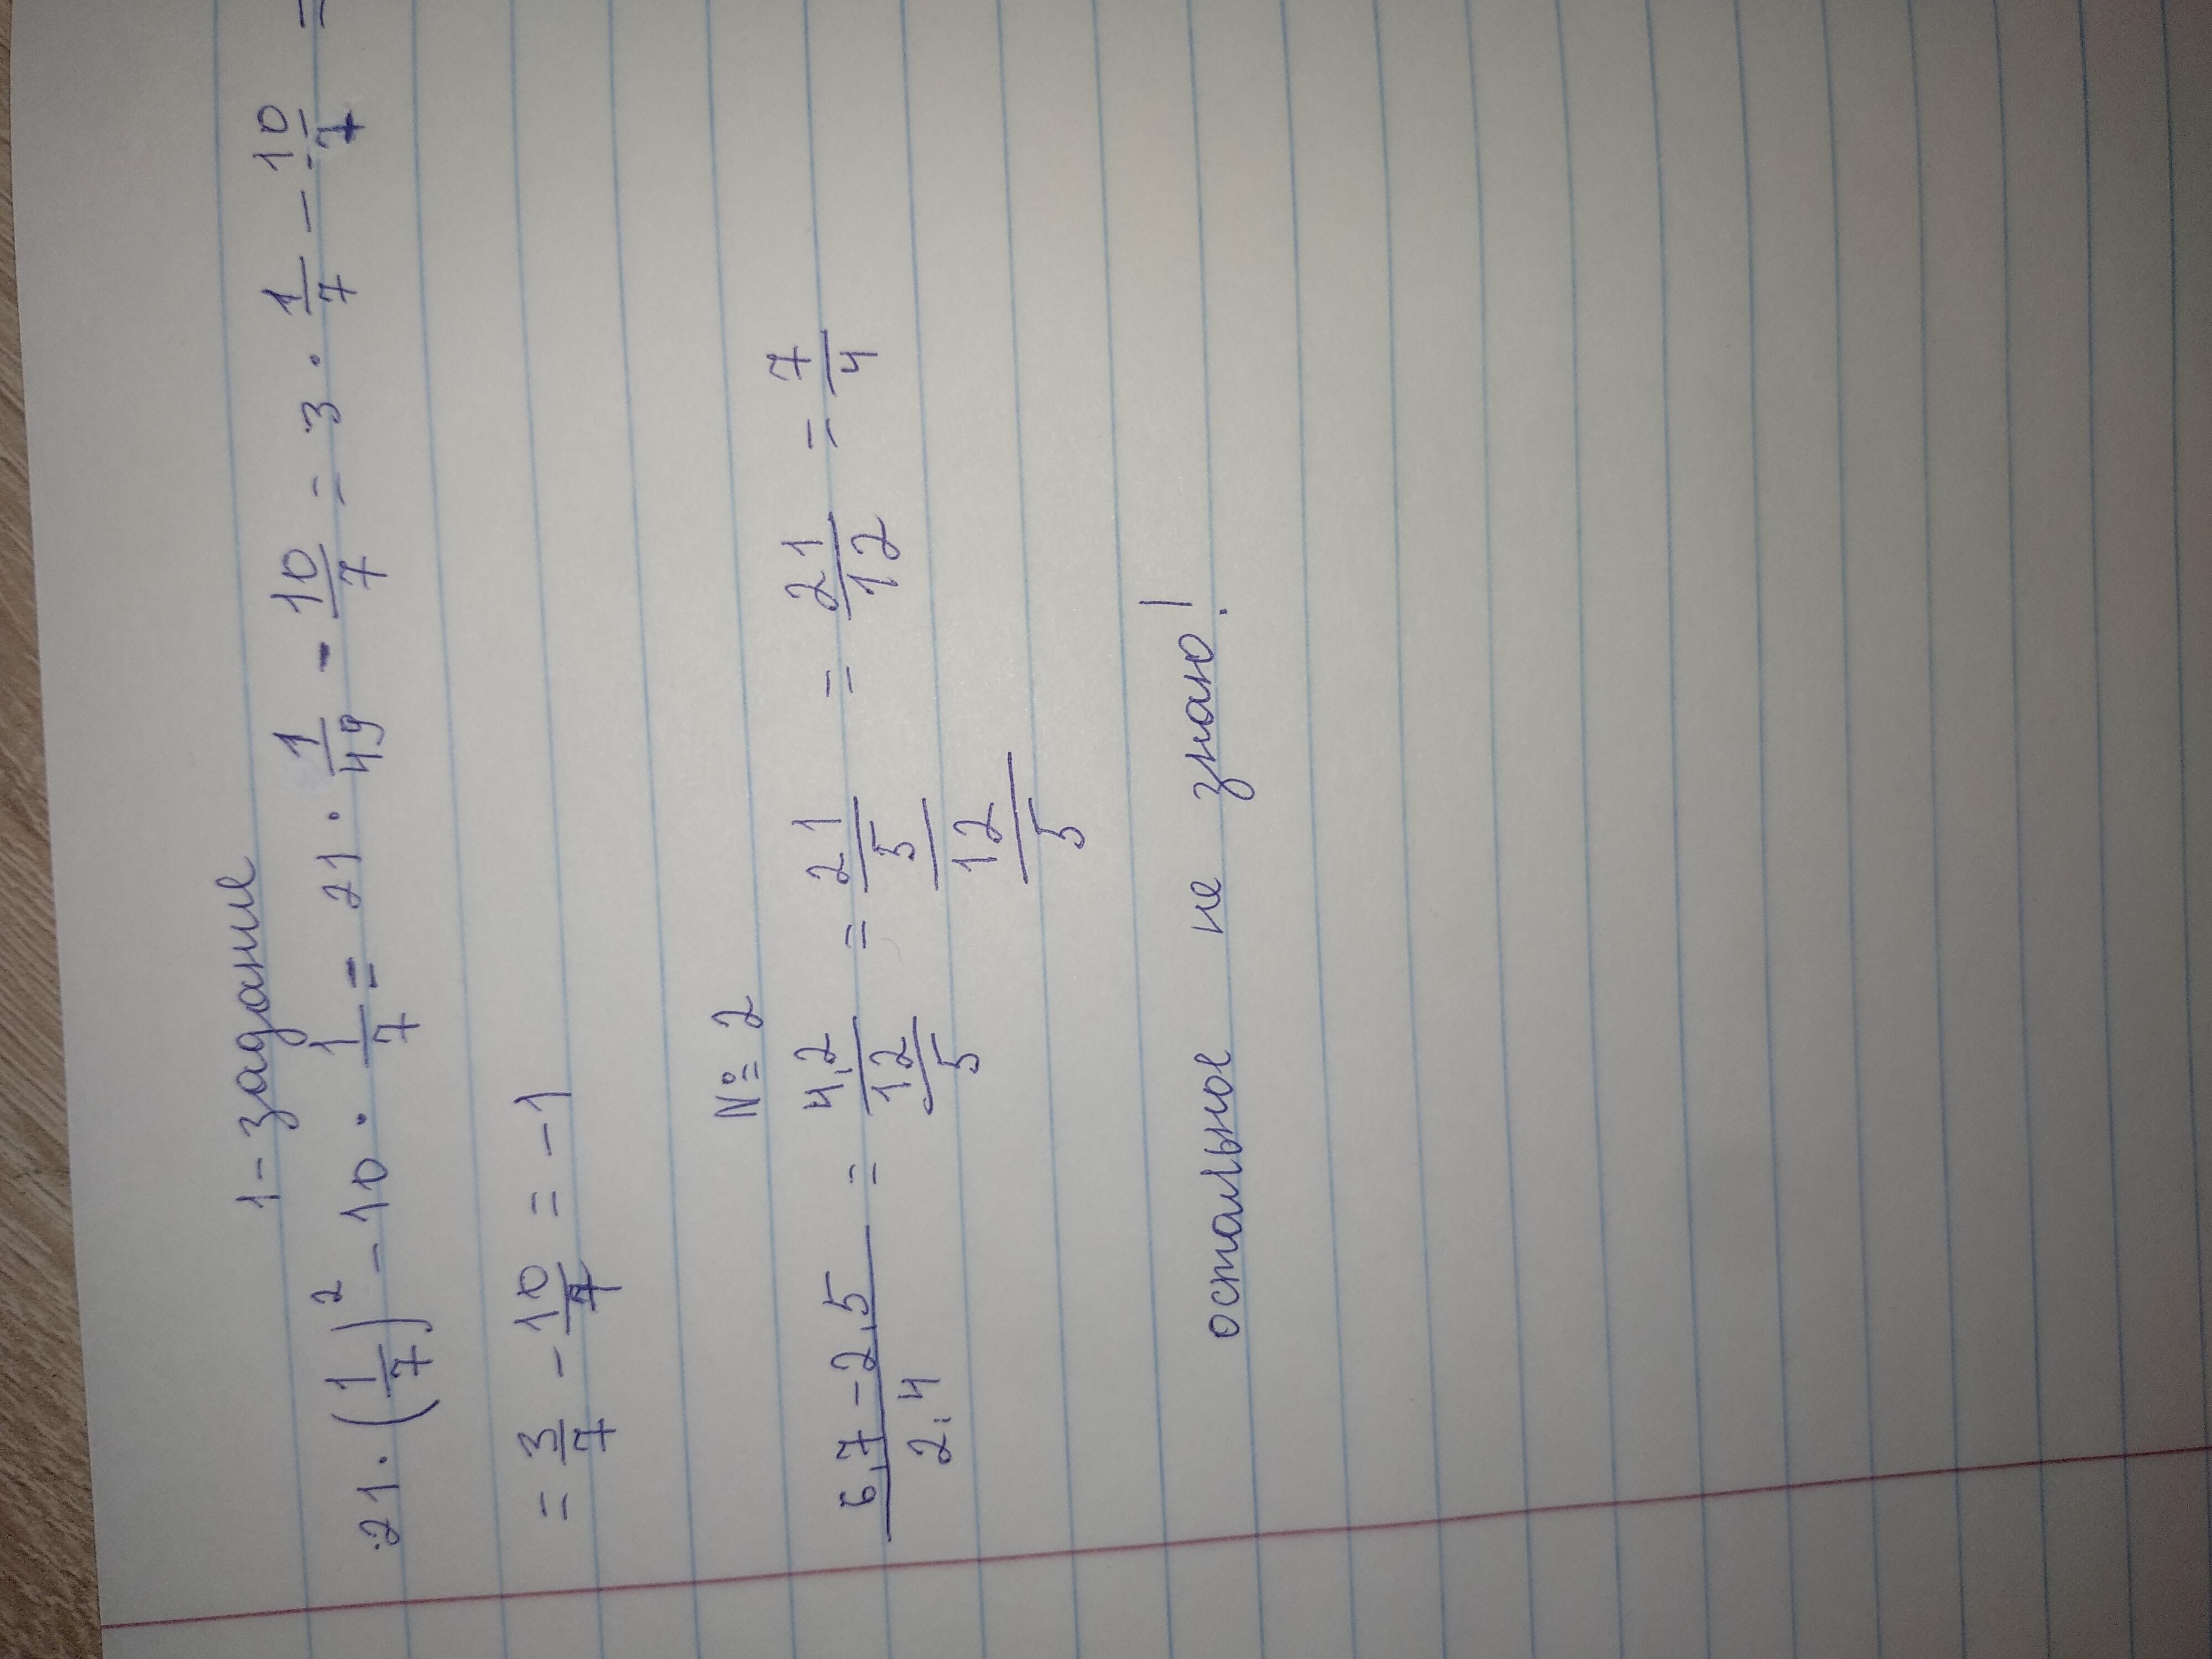 1-задание
21 · (1/7)² - 10 · 1/7 = 21 · 1/49 - 10/7 = 3 · 1/7 - 10/7 =
= 3/7 - 10/7 = -1
№ 2
6,7-2,5/2,4 = 4,2/12/5 = 21/5/12/5 = 21/12 = 7/4
остальное не знаю!